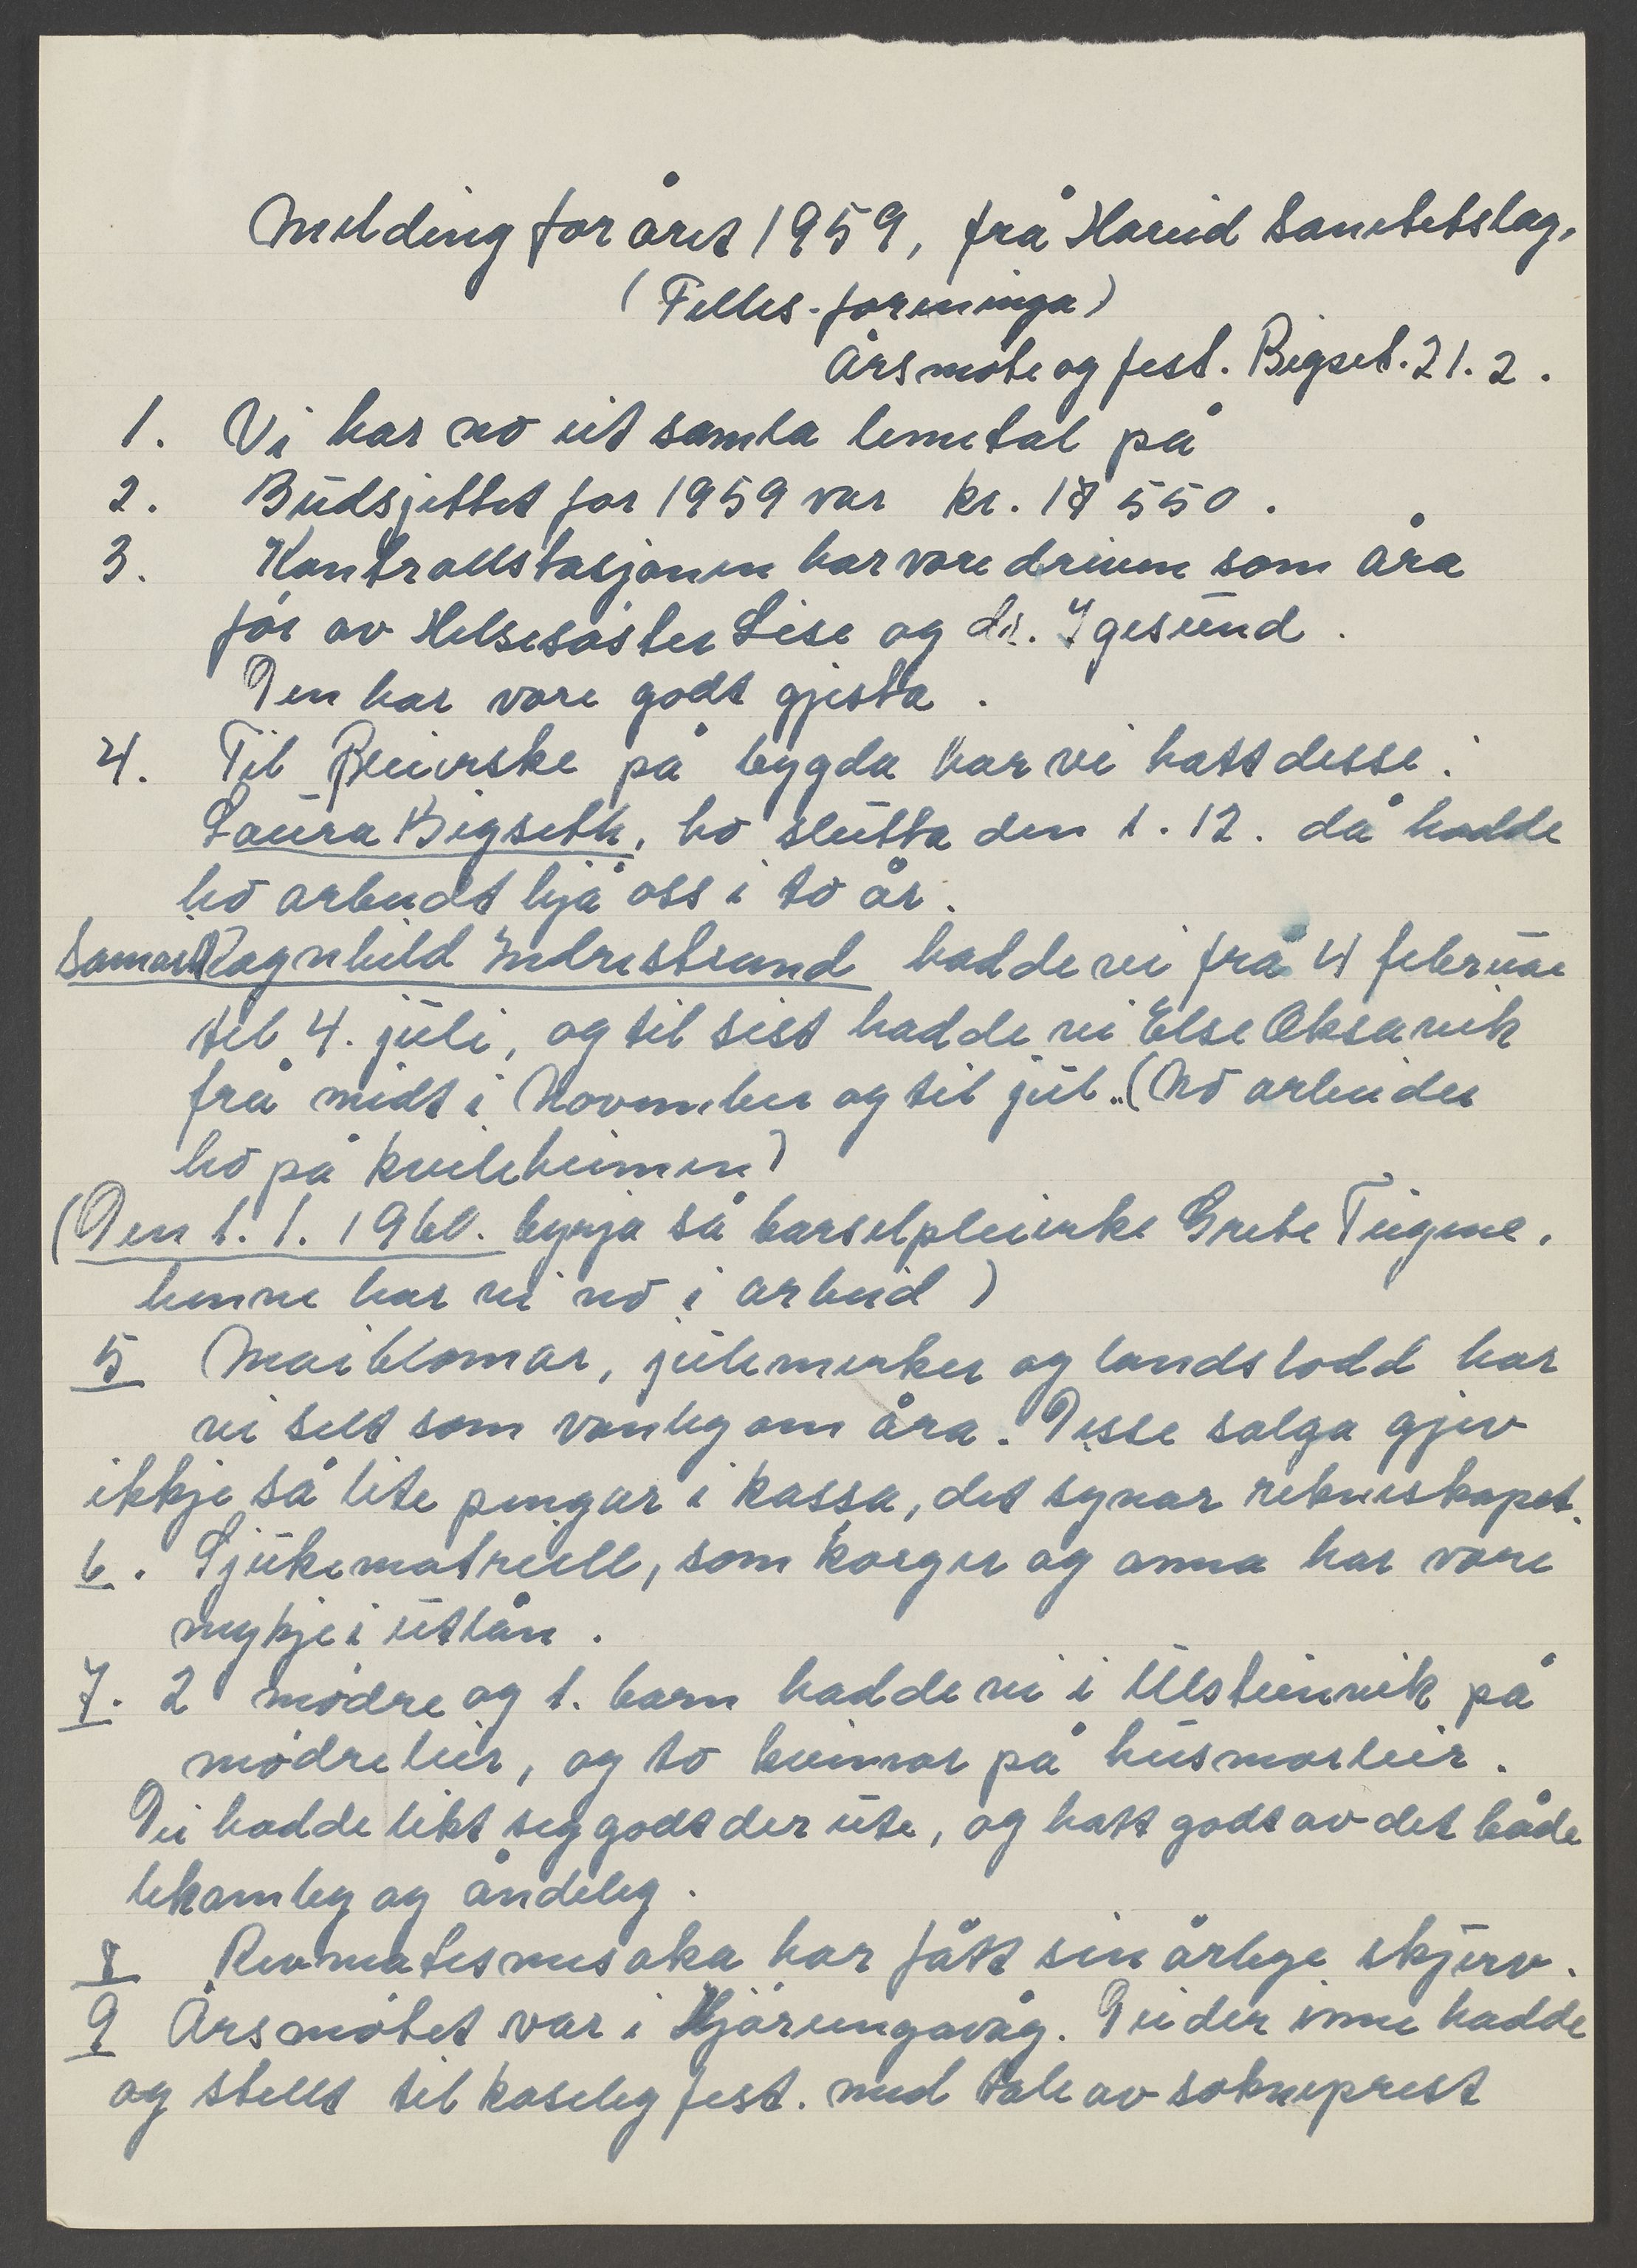 Melding for året 1959, frå Hareid Sanitetslag.
(Felles-foreninga)
Årsmøte og fest. Bigset. 21. 2.
1. Vi har no eit samla lemetal på
2. Budsjettet for 1959 var kr. 18 550.
3. Kontrollstasjonen har vore driven som åra
før av Helsesøster Lise og dr. Ygesund.
Den har vore godt gjesta.
4. Til Pleierske på bygda har vi hatt desse:
Laura Bigseth, ho slutta den 1. 12. då hadde
ho arbeidt hjå oss i to år.
Ragnhild Indrestrand hadde vi frå 4 februar
til 4. juli, og til sist hadde vi Else Oksavik
frå midt i November og til jul.. (No arbeider
ho på kvileheimen)
(Den 1. 1. 1960. byrja så barselpleierke Grete Teigene.
henne har vi no i arbeid)
5 Maiblomar, julemerker og landslodd har
vi selt som vanleg om åra. Desse salga gjev
ikkje så lite pengar i kassa, det synar rekneskapet.
6. Sjukematriell, som korger og anna har vore
mykje i utlån.
7. 2 mødre og 1. barn hadde vi i Ulsteinvik på
mødreleir, og to kvinner på husmorleir.
Dei hadde likt seg godt der ute, og hatt godt av det både
lekamleg og åndeleg.
8 Revmatismesaka har fått sin årlege skjerv.
9 Årsmøtet var i Hjørungavåg. Dei der inne hadde
og stellt til koseleg fest. med tale av sokneprest